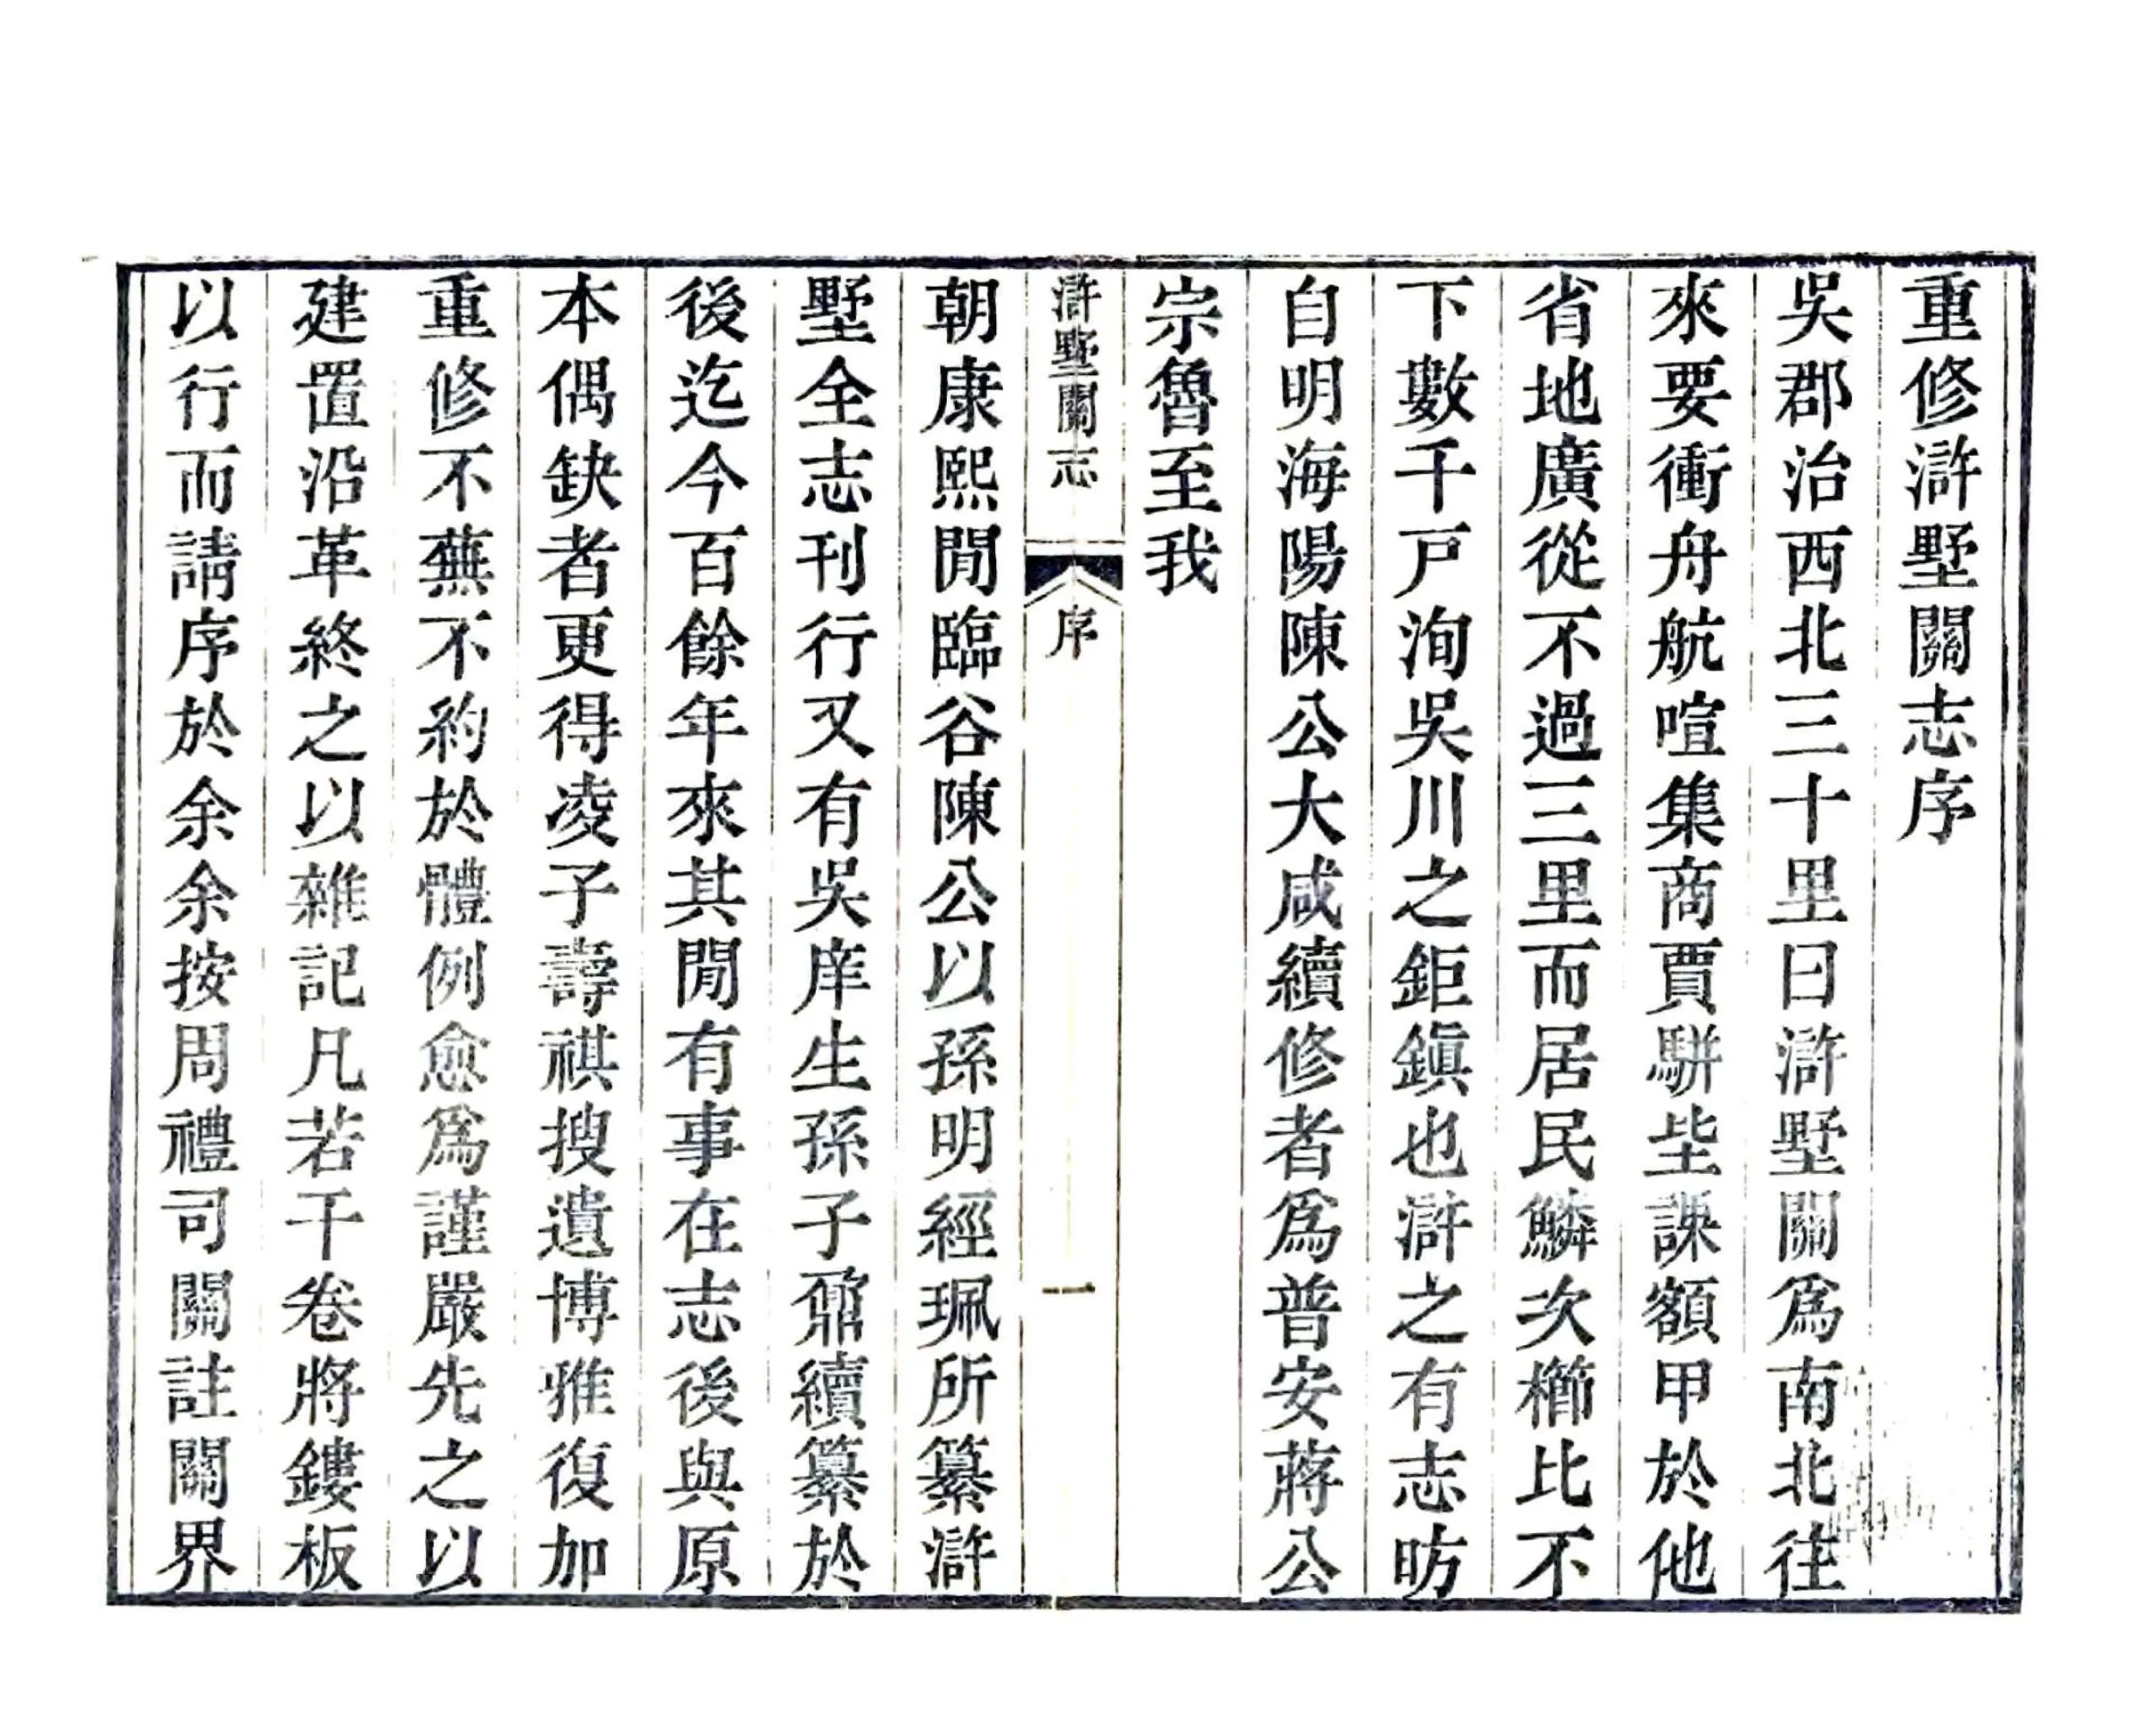 重修滸墅關志序
吳郡治西北三十里曰滸墅關爲南北往
來要衝舟航喧集商賈駢坒課額甲於他
省地廣從不過三里而居民鱗次櫛比不
下數千戸洵吳川之鉅鎭也滸之有志昉
自明海陽陳公大咸續修者爲普安蔣公
宗魯至我
滸墅關志
序
一
朝康熙閒臨谷陳公以孫明經珮所纂滸
墅全志刊行又有吳庠生孫子鼐續纂於
後迄今百餘年來其閒有事在志後與原
本偶缺者更得凌子壽祺搜遺博雅復加
重修不蕪不約於體例愈爲謹嚴先之以
建置沿革終之以雜記凡若干卷將鏤板
以行而請序於余余按周禮司關註關界